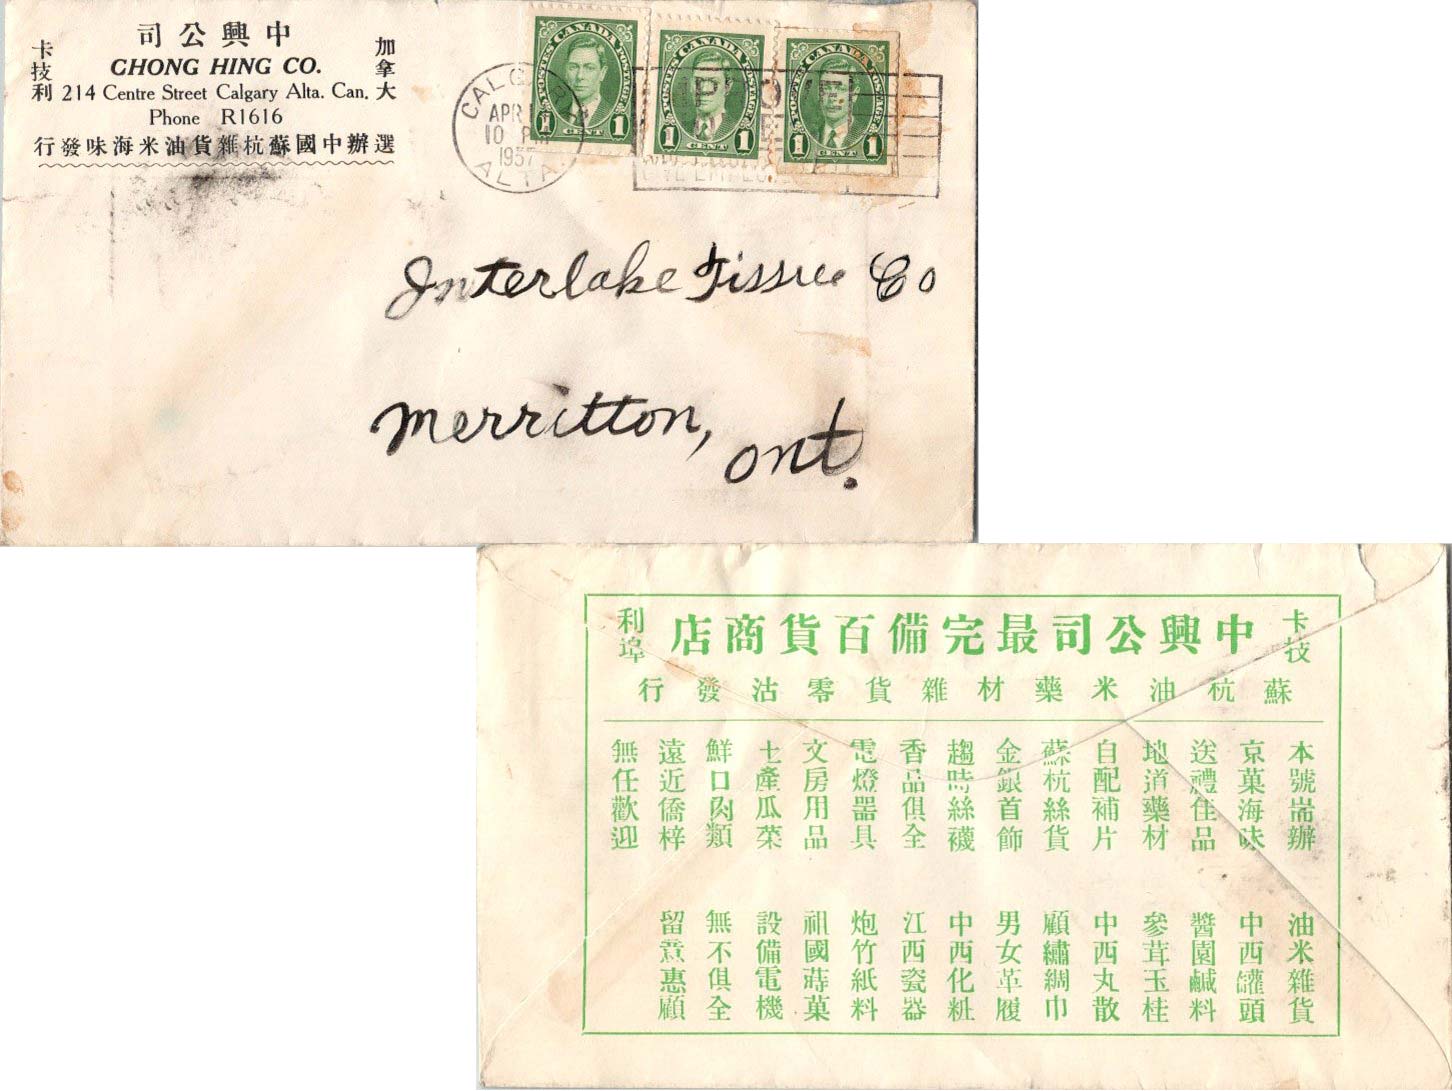 中興公司
CHONG HING CO.
加拿大
卡技利
214 Centre Street Calgary Alta. Can.
Phone R1616
選辦中國蘇杭雜貨油米海味發行
CANADA
POSTES POSTAGE
1 CENT 1
CANADA
POSTES POSTAGE
1 CENT 1
CANADA
POSTES POSTAGE
1 CENT 1
CALGARY
APR
10 PM
1937
ALTA
Interlake Tissue Co
Merritton, Ont.
卡技
中興公司最完備百貨商店
利埠
蘇杭油米藥材雜貨零沽發行
本號耑辦 油米雜貨
京菓海味 中西罐頭
送禮佳品 醬園鹹料
地道藥材 參茸玉桂
自配補片 中西丸散
蘇杭絲貨 顧繡綢巾
金銀首飾 男女革履
趨時絲襪 中西化粧
香品俱全 江西瓷器
電燈器具 炮竹紙料
文房用品 祖國蒔菓
土產瓜菜 設備電機
鮮口肉類 無不俱全
遠近僑梓 留意惠顧
無任歡迎